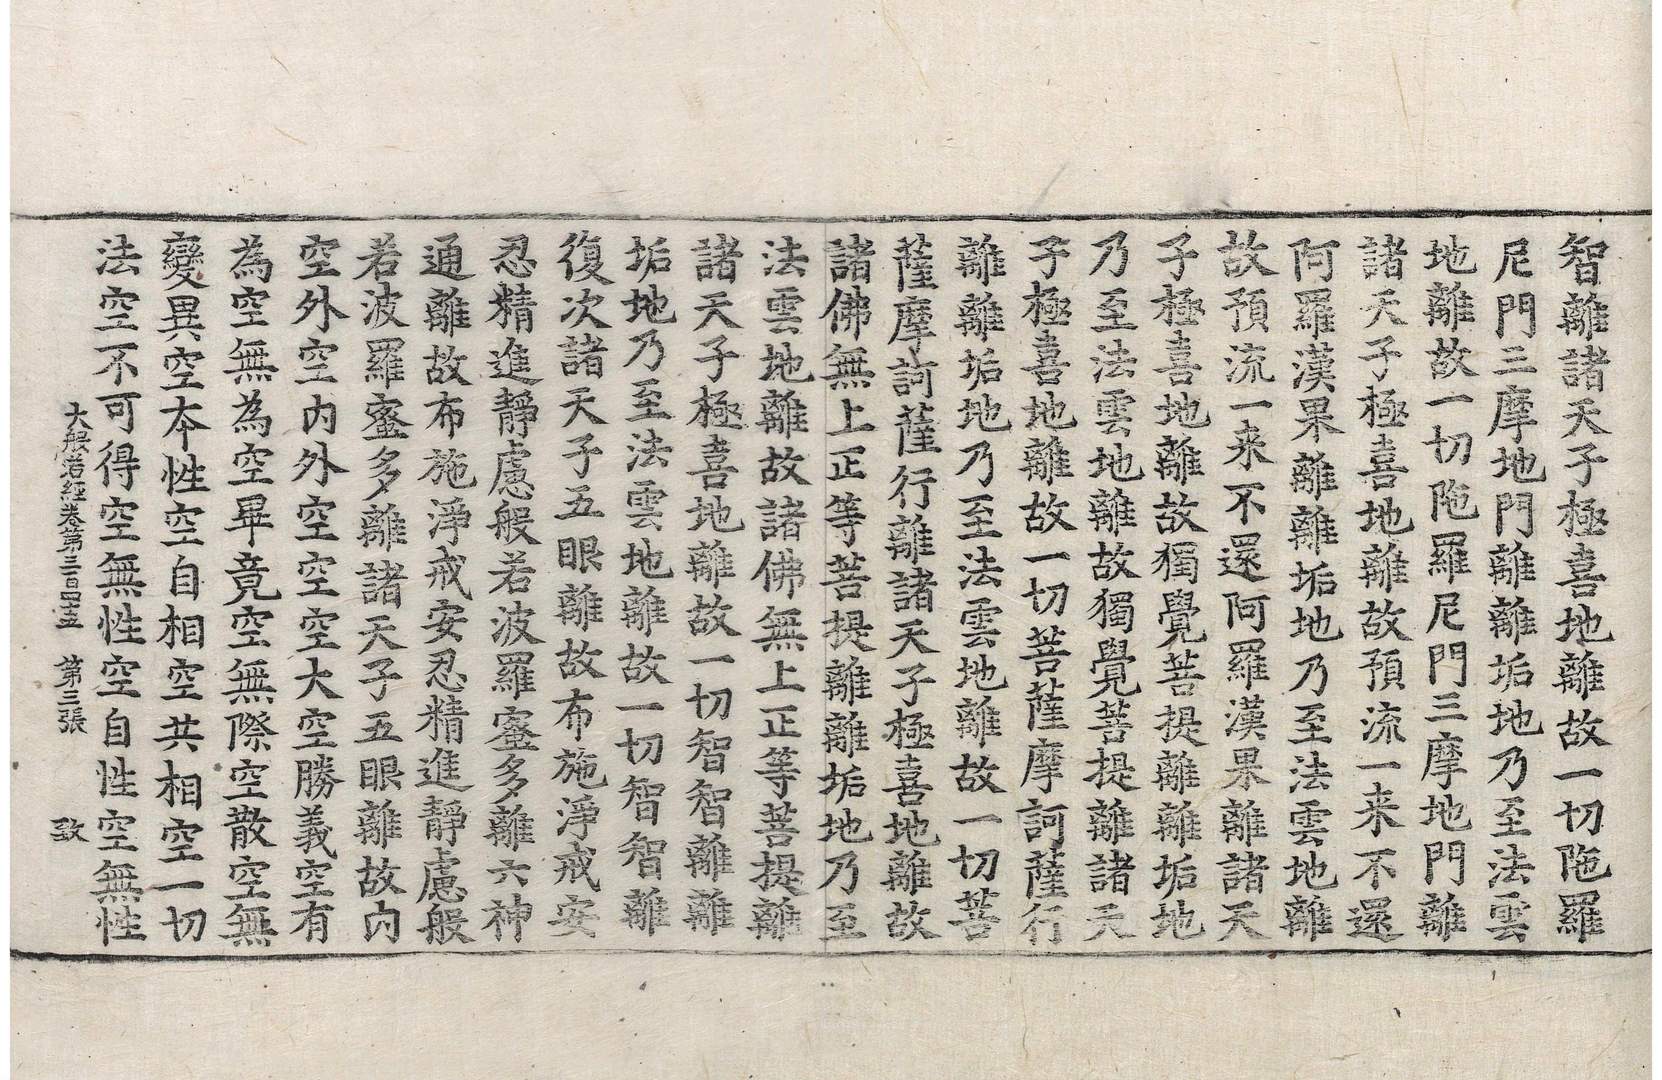 智離諸天子極喜地離故一切陁羅
尼門三摩地門離離垢地乃至法雲
地離故一切陁羅尼門三摩地門離
諸天子極喜地離故預流一来不還
阿羅漢果離離垢地乃至法雲地離
故預流一来不還阿羅漢果離諸天
子極喜地離故獨覺菩提離離垢地
乃至法雲地離故獨覺菩提離諸天
子極喜地離故一切菩薩摩訶薩行
離離垢地乃至法雲地離故一切菩
薩摩訶薩行離諸天子極喜地離故
諸佛無上正等菩提離離垢地乃至
法雲地離故諸佛無上正等菩提離
諸天子極喜地離故一切智智離離
垢地乃至法雲地離故一切智智離
復次諸天子五眼離故布施淨戒安
忍精進靜慮般若波羅蜜多離六神
通離故布施淨戒安忍精進靜慮般
若波羅蜜多離諸天子五眼離故內
空外空內外空空空大空勝義空有
為空無為空畢竟空無際空散空無
變異空本性空自相空共相空一切
法空不可得空無性空自性空無性
大般若經卷第三百四十五 第三張 致